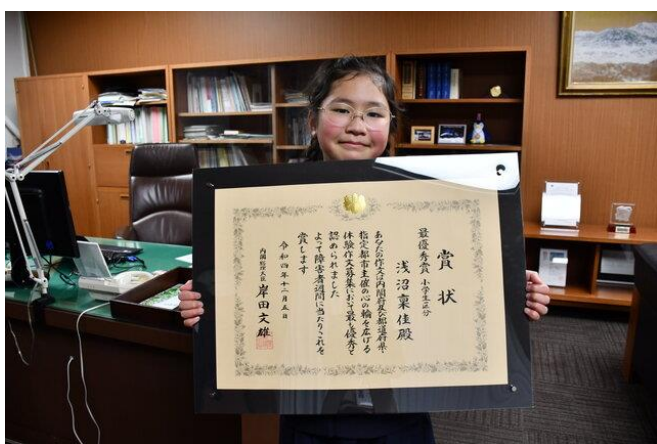 賞状
最優秀賞 小学生区分
浅沼稟佳殿
あなたの作文は内閣府及び都道府県・
指定都市主催の心の輪を広げる
体験作文募集において最も優秀と
認められました
よって障害者週間に当たりこれを
賞します
令和四年十二月五日
内閣総理大臣 岸田文雄